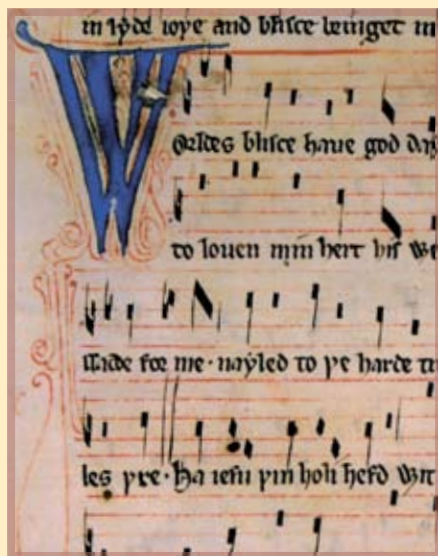 in ioye and blisce in
Worldes blisce haue god day
to louen min hert his we
ssade for me · nayled to þe harde tr
les þre · Ha iesu þin holi hefd wit